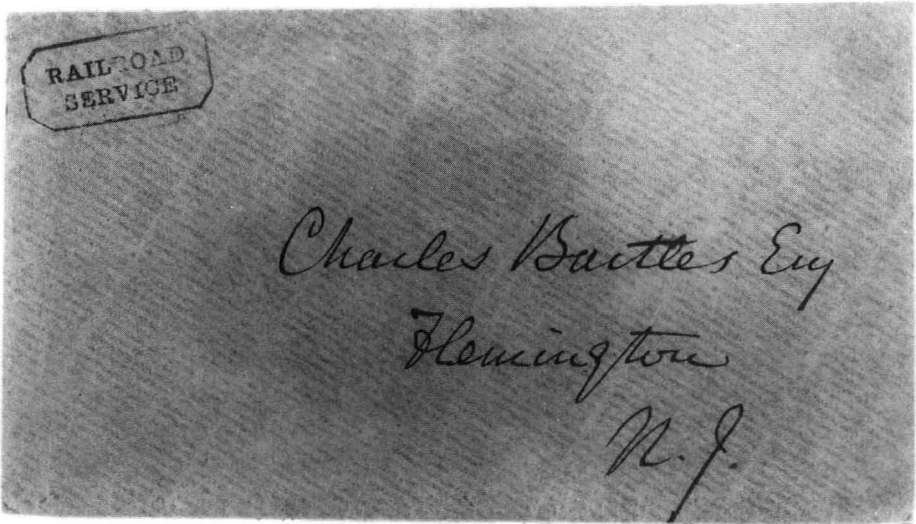 RAILROAD
SERVICE
Charles Bartles Esq
Flemington
N. J.